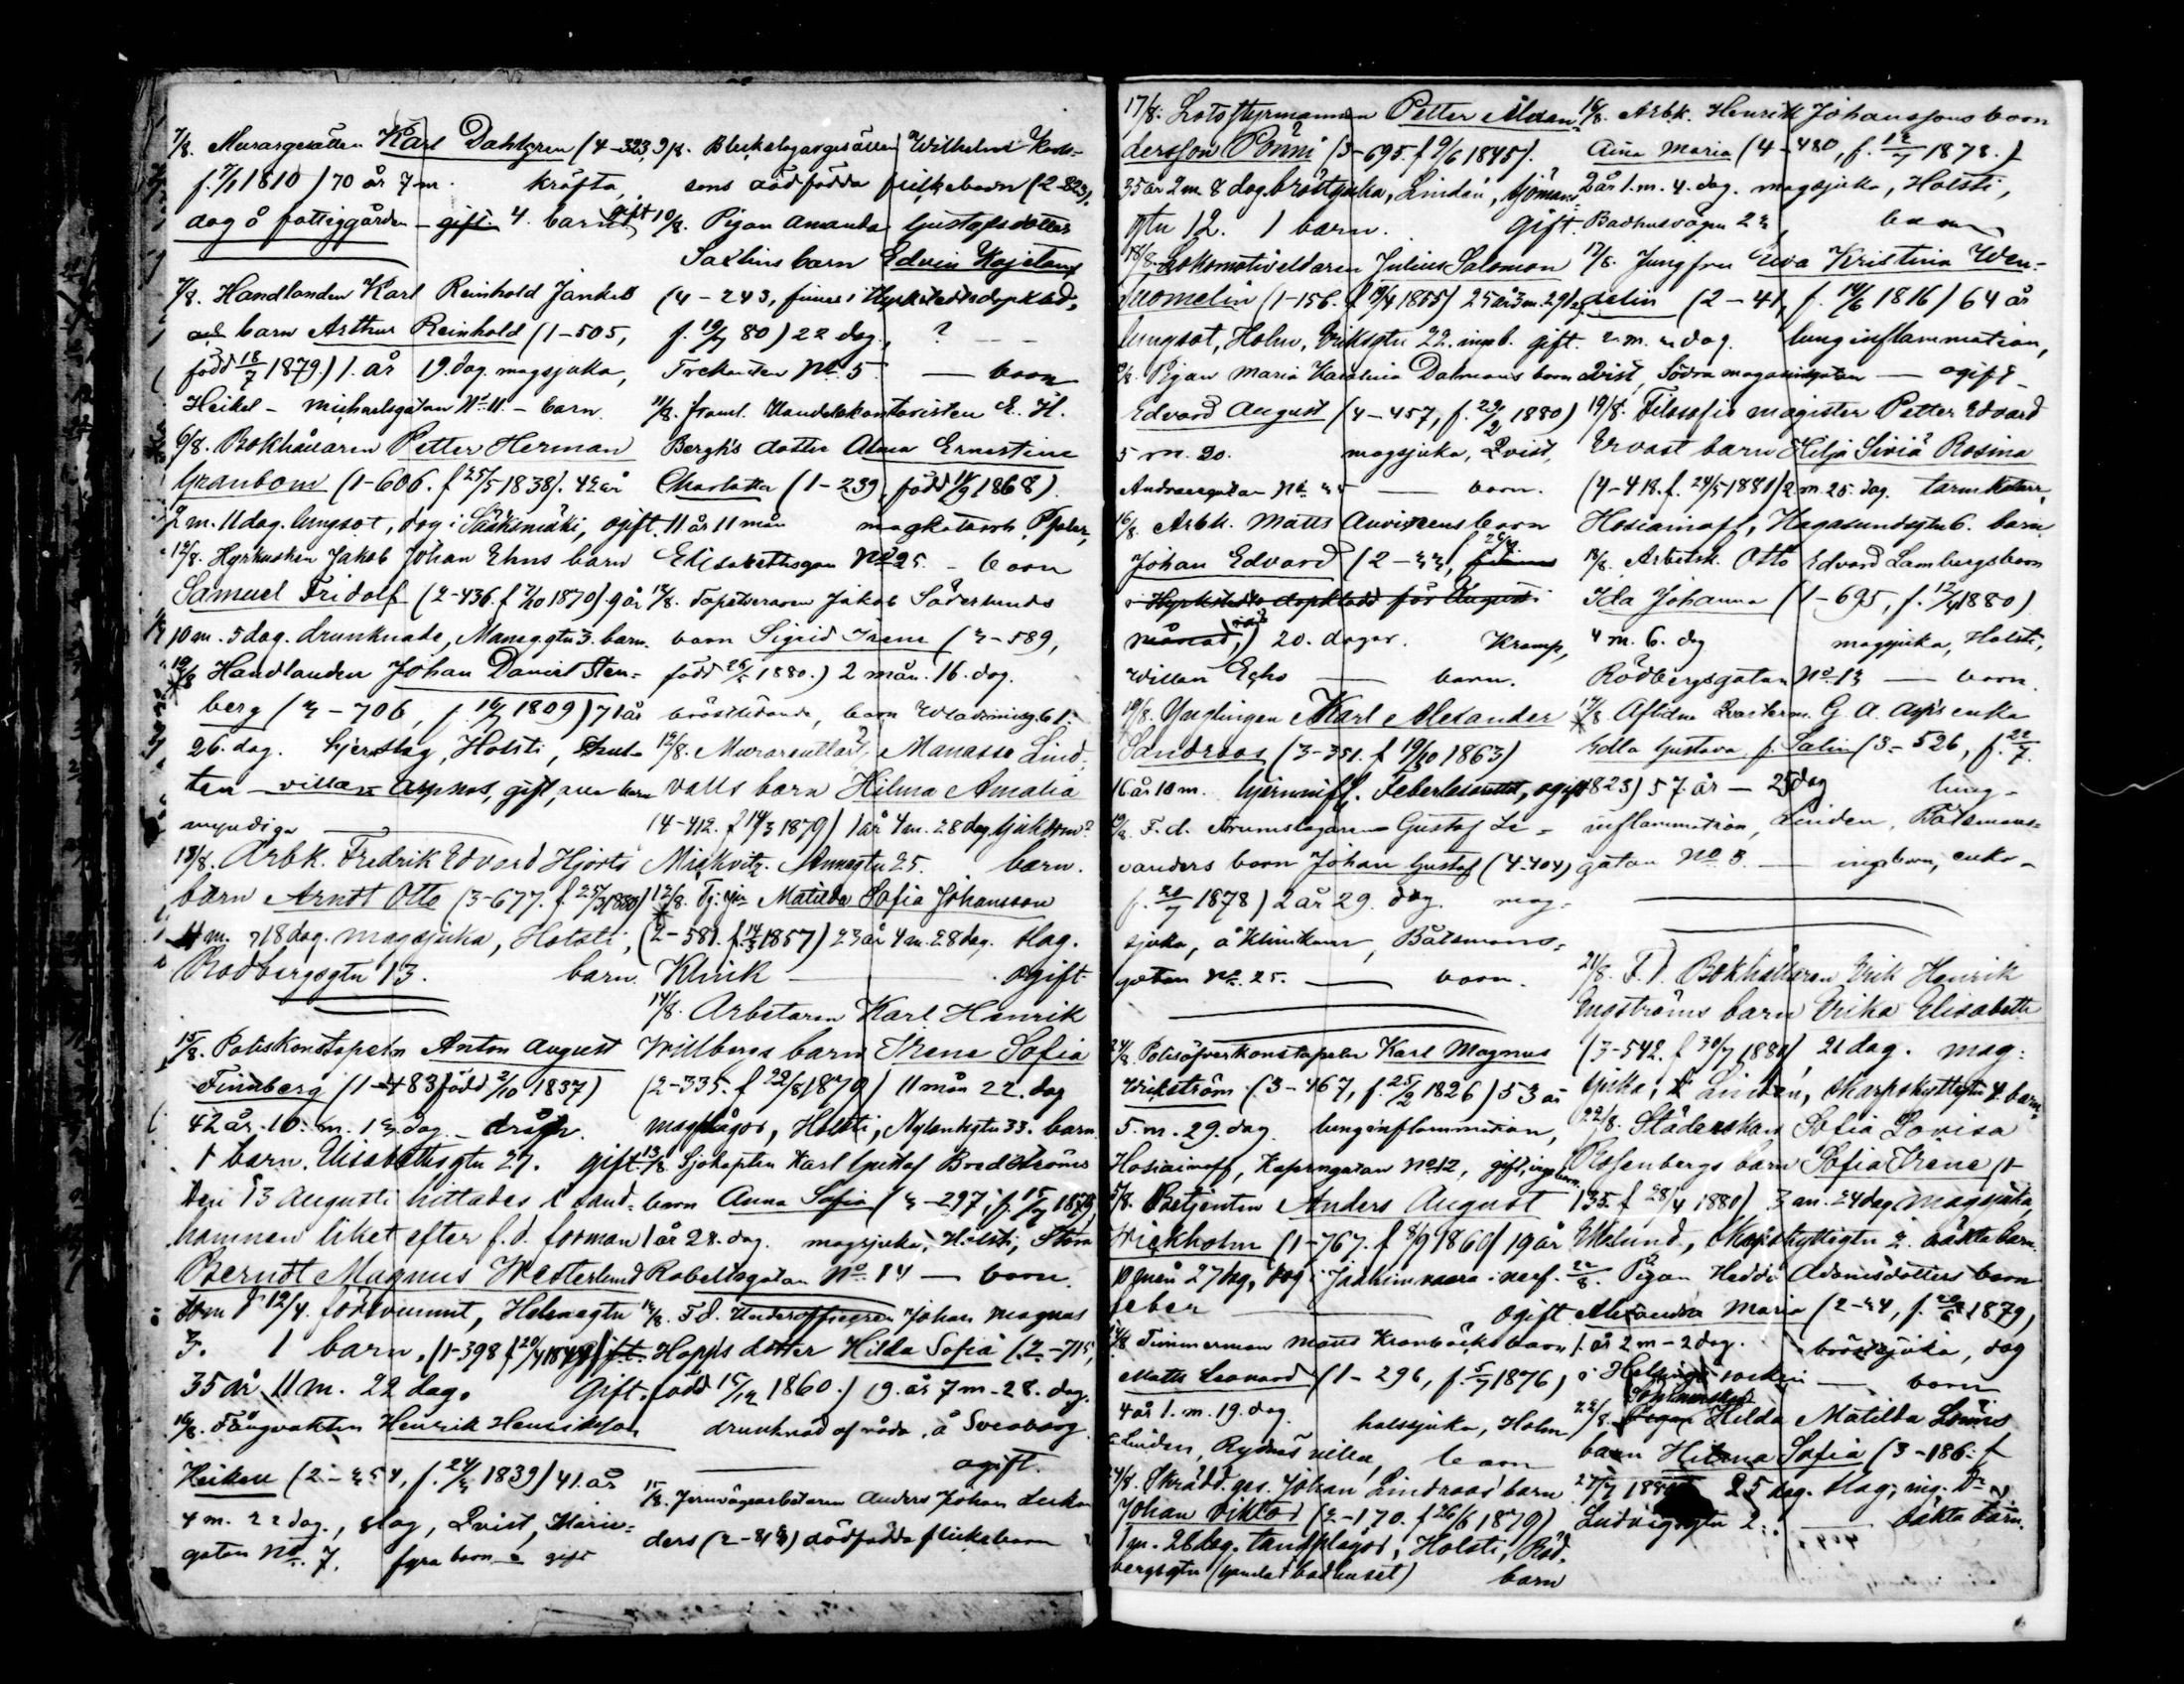 7/8. Murargesällen Karl Dahlgren (4-323,
f. 7/1 1810) 70 år 7 m. kräfta,
dog å fattiggården - gift. 4. barn gift
7/8. Handlanden Karl Reinhold Janhed
barn Arthur Reinhold (1-505,
född 18/7 1879.) 1. år 19. dag. magsjuka,
Heikel - Michaelsgatan No 11. - barn.
6/8. Bokhållaren Petter Herman
Granbom (1-606. f 25/5 1838). 42 år
2 m. 11 dag. lungsot, dog i Sääksmäki, ogift.
12/8. Hyrkusken Jakob Johan Ehns barn
Samuel Fridolf (2-436. f 7/10 1870). 9 år
10 m. 5 dag. drunknade, Maneg.gtn 3. barn.
12/8 Handlanden Johan Daniel Sten-
berg (3-706, f. 16/7 1809) 71 år
26. dag. hjerslag, Holsti,
ten - villan Aspnäs, gift, barn
myndiga
13/8. Arbk. Fredrik Edvard Hjorts
barn Arndt Otto (3-677. f. 25/3 1880)
4 m. 18 dag. magsjuka, Holsti,
Rödbergsgtn 13. barn.
15/8. Poliskonstapeln Anton August
Finnberg (1-483 född 2/10 1837)
42 år. 10. m. 13. dag -
1 barn. Elisabethsgtn 27. gift.
Den 13 Augusti hittades i Sand-
hamnen liket efter f.d. forman
Berndt Magnus Westerlund
som d 12/4. försvunnit, Helenagtn
3. 1 barn. (1-398 f 20/4 1844)
35 år 11 m. 22 dag. Gift.
16/8. Fångvakten Henrik Henriksson
Heiken (2-354, f. 24/3 1839) 41. år
4 m. 22 dag., slag, Qvist, Marie-
gatan No. 7. fyra barn - gift
9/8. Bleckslagargesällen Wilhelm
sons dödfödda flickebarn (2-823).
10/8. Pigan Amanda Gustafsdotter
Saxlins barn Edvin Kajetan
(4-243, finnes i Kyrkstedtsdopk.
f. 19/7 80) 22 dag., ? - -
Trekanten No. 5. - barn
11/8. framl. Handelskontoristen E. H.
Berghs dotter Alma Ernestine
Charlotta (1-239, född 11/9 1868).
11 år 11 mån magkatarrh,
Elisabethsgan No 25. - barn
12/8. Tapetseraren Jakob Söderlunds
barn Sigrid Irene (3-589,
född 26/5 1880.) 2 mån. 16. dag.
bröstlidande, barn Wladimirsg. 61.
12/8. Murareullärl. Manasse Lind-
valls barn Hilma Amalia
(4-412. f 14/3 1879) 1 år 4 m. 28 dag, sjukdom?
Mickvitz. Annegtn 25. barn.
12/8. Tj. gn Matilda Sofia Johansson
(2-581. f. 14/3 1857) 23 år 4 m. 28 dag. slag.
Klinik - ogift.
14/8. Arbetaren Karl Henrik
Willbergs barn Irene Sofia
(2-335. f 22/8 1879) 11 mån 22. dag
magplågor, Holsti, Nylandsgtn 33. barn.
13/8 Sjökapten Karl Gustaf Bredströms
barn Anna Sofia (3-297, f. 15/7 1879,
1 år 28. dag. magsjuka, Holsti, Stora
Robertsgatan No. 14 - barn.
14/8. F.d. Underofficeren Johan Magnus
Hopps dotter Hilda Sofia (2-715,
född 15/12 1860.) 19. år 7 m. - 28. dag.
drunknad af våda, å Sveaborg
- ogift.
15/8. Jernvägsarbetaren Anders Johan
ders (2-818) dödfödda flickebarn
17/8. Lotsstyrmannen Petter Alexan-
dersson Pönni (3-695. f 9/6 1845).
35 år 2 m. 8 dag. bröstsjuka, Lindén, Sjömans-
gtn 12. 1 barn. Gift.
18/8 Lokomotiveldaren Julius Salomon
Nomelin (1-156. f 19/4 1855) 25 år 3 m. 29 dag
lungsot, Holm, Eriksgtn 22. ing b. gift.
Pigan Maria Karolina Dalmans barn
Edvard August (4-457, f. 29/2 1880)
5 m. 20. magsjuka, Qvist,
Andraegatan No. 35 - barn.
16/8. Arbk. Matts Anvinens barn
Johan Edvard (2-33, f 26/7. finnes
i Kyrkstedts dopkladd för Augusti
månad,) 20. dagar. Kramp,
Villan Echo - barn.
19/8. Ynglingen Karl Alexander
Sandroos (3-351. f 19/10 1863)
16 år 10 m. hjerninfl. ogift
19/8. F.d. Trumslagaren Gustaf Le-
vanders barn Johan Gustaf (4-404)
f. 20/7 1878) 2 år 29. dag. mag-
sjuka, å Kliniken, Båtsmans-
gatan No. 25. - barn.
24/8 Polisöfverkonstapeln Karl Magnus
Wrikström (3-467, f. 25/2 1826) 53 år
5. m. 29. dag. lunginflammation,
Hosiainoff, Kaserngatan No 12, gift, inga barn.
5/8. Betjenten Anders August
Wickholm (1-767. f 8/9 1860) 19 år
10 mån 27 dag, dog i Jaakimvaara i nerf-
feber - ogift
24/8 Timmerman Matts Kronbäcks barn
Matts Leonard (1-296, f. 5/7 1876)
4 år 1. m. 19. dag. halssjuka, Holm,
Linden, Rydnäs villa, barn
24/8. Skrädd. ges. Johan Lindroos barn
Johan Viktor (2-170. f 26/6 1879)
1 m. 28 dag. tandplågor, Holsti, Röd-
bergsgtn (gamla badhuset) barn
16/8. Arbk. Henrik Johanssons barn
Aina Maria (4-480, f. 12/7 1878.)
2 år 1. m. 4. dag. magsjuka, Holsti,
Badhusvägen 23, barn
17/8. Jungfru Ewa Kristina Wen-
delin (2-41, f. 14/6 1816) 64 år
2. m. 3 dag. lunginflammation,
Qvist, Södra magasinsgatan - ogift -
19/8. Filosofie magister Petter Edvard
Ervast barn Hilja Siviä Rosina
(4-418. f. 24/5 1880) 2 m. 25. dag. tarmkatarr,
Hosiainoff, Hagasundsgtn 6. barn.
18/8. Arbetsk. Otto Edvard Lambergs barn
Ida Johanna (1-695, f. 12/4 1880)
4 m. 6. dag magsjuka, Holsti,
Rödbergsgatan No. 13 - barn.
17/8. Aflidne G. A. Asps enka
Edla Gustava f. Salin (3-526, f. 22/7.
1823) 57. år - 25 dag lung-
inflammation, Linden, Båtsmans-
gatan No 5. - inga barn, enka -
21/8. F.d. Bokhållaren Erik Henrik
Engströms barn Erika Elisabeth
(3-542. f 30/7 1880) 21 dag. mag-
sjuka, Dr Lindén, Skarpskyttegtn 4. barn.
22/8. Städerskan Sofia Lovisa
Rosenbergs barn Sofia Irene (1-
135. f 28/4 1880) 3 m. 24 dag magsjuka,
Ekelund, Skarpskyttegtn 2. oäkta barn.
22/8. Pigan Hedda Adamsdotters barn
Alexandra Maria (2-34, f. 20/6 1879)
1. år 2 m - 2 dag. bröstsjuka, dog
i Helsinge socken - barn
22/8. Pigan Hilda Matilda
barn Hilma Sofia (3-186. f
27/7 1880 25 dag. slag, ing. Dr
Ludvigsgtn 2. - oäkta barn.